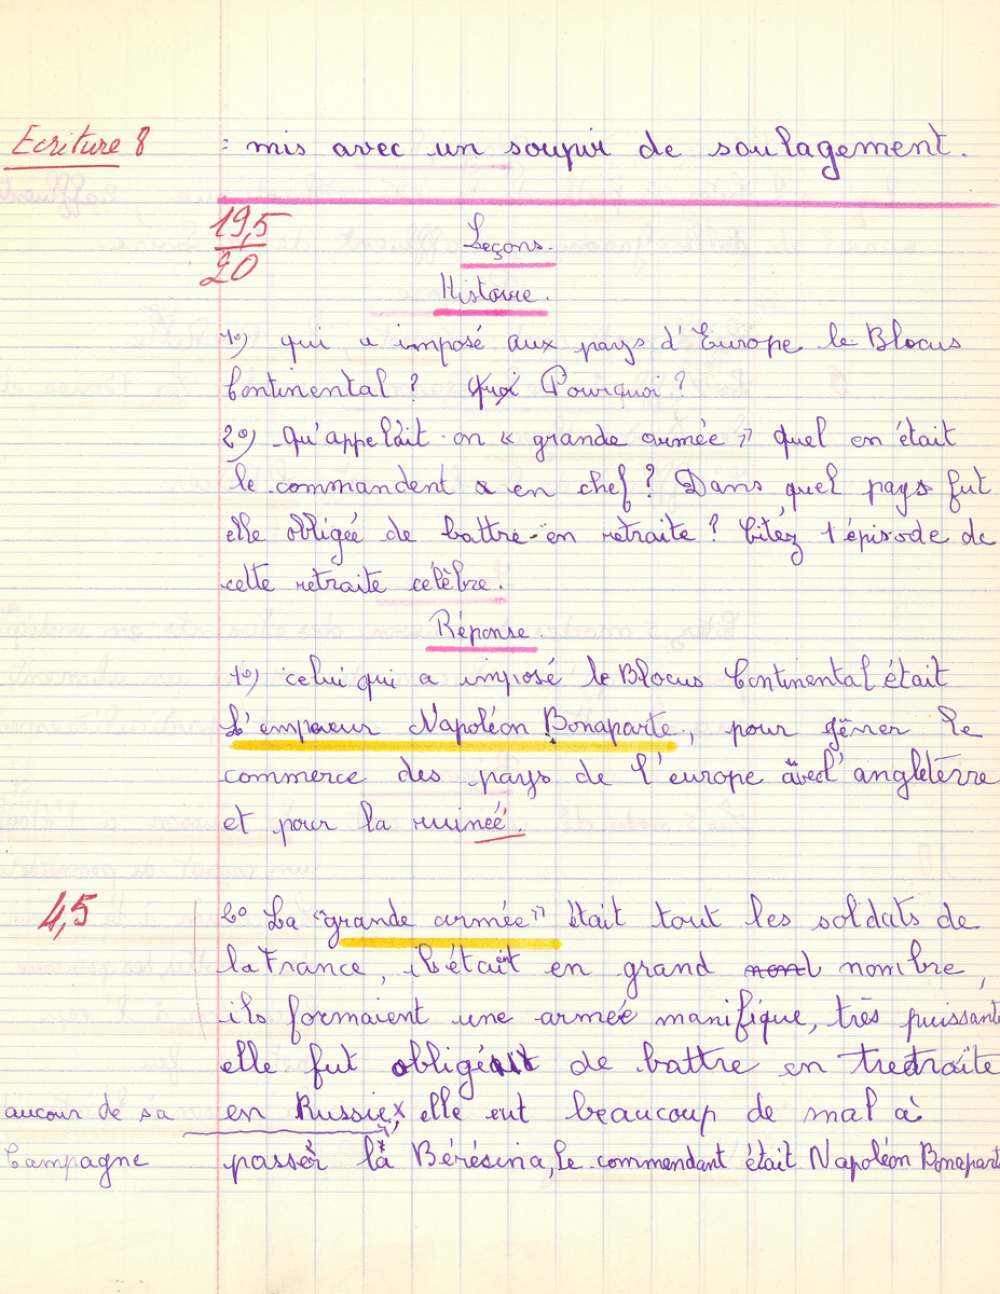 Ecriture 8 : mis avec un soupir de soulagement.
19,5
20
Leçons.
Histoire.
1°) qui a imposé aux pays d'Europe le Blocus
Continental ? Quoi Pourquoi ?
2°) Qu'appelait-on « grande armée » quel en était
le commandent a en chef ? Dans quel pays fut
elle obligée de battre-en retraite ? Citez l'épisode de
cette retraite célèbre.
Réponse.
1°) celui qui a imposé le Blocus Continental était
L'empereur Napoléon Bonaparte, pour gêner le
commerce des pays de l'europe avecl'angleterre
et pour la ruinée.
4,5
2° La "grande armée" était tout les soldats de
la France, ils étaient en grand nombre,
ils formaient une armée manifique, très puissante
elle fut obligéait de battre en tretraite
aucour de sa en Russie, elle eut beaucoup de mal à
Campagne passer la Bérésina, le commandant était Napoléon Bonapart